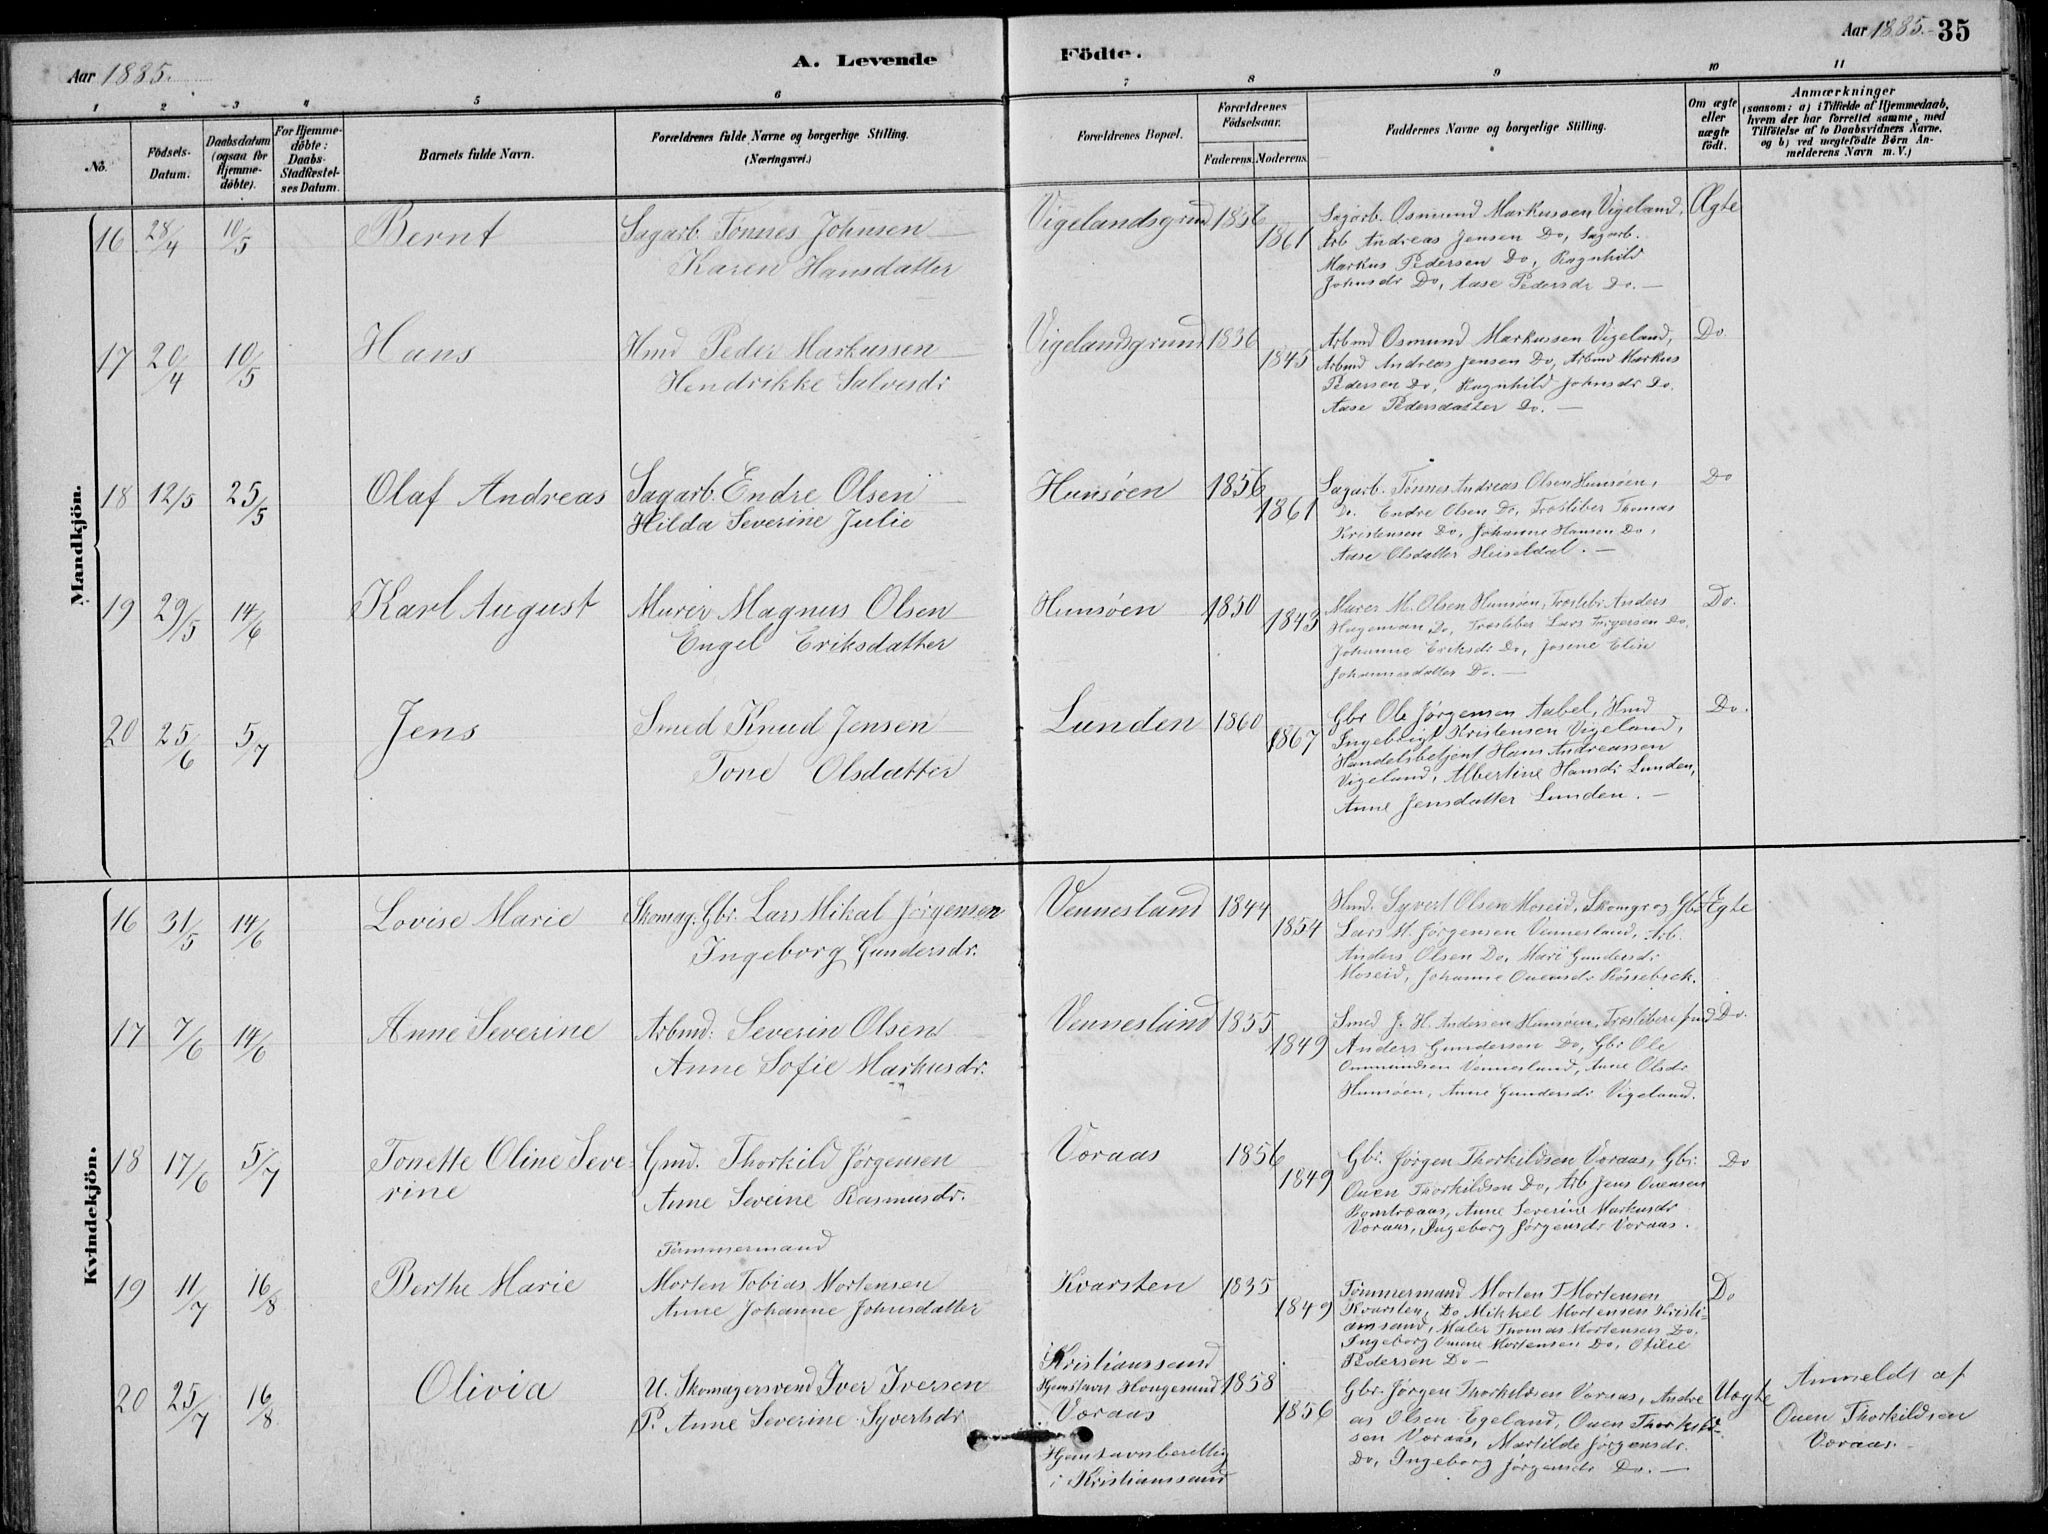 Aar 1885.
A. Levende
Födte.
Aar 1885. 35
1 2 3 4 5 6 7 8 9 10 11
No.
Födsels-
Datum.
Daabsdatum
(ogsaa for
Hjemme-
döbte).
For Hjemme-
döbte:
Daabs-
Stadfæstel-
ses Datum.
Barnets fulde Navn.
Forældrenes fulde Navne og borgerlige Stilling.
(Næringsvei.)
Forældrenes Bopæl.
Forældrenes
Födselsaar.
Faderens. Moderens.
Faddernes Navne og borgerlige Stilling.
Om ægte
eller
uægte
födt.
Anmærkninger
(saasom: a) i Tilfælde af Hjemmedaab,
hvem der har forrettet samme, med
Tilföielse af to Daabsvidners Navne,
og b) ved uægtefödte Börn An-
melderens Navn m. V.)
Mandkjön.
16 28/4 10/5 Bernt Sagarb. Tønnes Johnsen
Karen Hansdatter
Vigelandsgrund 1856 1861
Sagarb. Osmund Markussen Vigeland,
Arb Andreas Jensen Do, Sagarb.
Markus Pedersen Do, Ragnhild
Johnsdr Do, Aase Pedersdr Do. —
Ægte
17 20/4 10/5 Hans Hmd Peder Markussen
Hendrikke Salvesdr
Vigelandsgrund 1836 1845
Arbmd Osmund Markussen Vigeland,
Arbmd Andreas Jensen Do, Arbmd Markus
Pedersen Do, Ragnhild Johnsdr Do.
Aase Pedersdatter Do. —
Do.
18 12/5 25/5 Olaf Andreas Sagarb. Endre Olsen
Hilda Severine Julie
Hunsøen 1856 1861
Sagarb. Tønnes Andreas Olsen Hunsøen,
Do. Endre Olsen Do, Træsliber Thomas
Kristensen Do, Johanne Hansen Do,
Aase Olsdatter Heiseldal. —
Do
19 29/5 14/6 Karl August Murer Magnus Olsen
Engel Eriksdatter
Hunsøen 1850 1843
Murer M. Olsen Hunsøen, Træslibr Anders
Hageman Do, Træsliber Lars Torgersen Do,
Johanne Eriksdr Do, Josine Elise
Johannesdatter Do. —
Do.
20 25/6 5/7 Jens Smed Knud Jensen
Tone Olsdatter
Lunden 1860 1867
Gbr Ole Jørgensen Aabel, Hmd
Ingebrigt Kristensen Vigeland,
Handelsbetjent Hans Andreassen
Vigeland, Albertine Hansdr Lunden,
Anne Jensdatter Lunden. —
Do.
Kvindekjön.
16 31/5 14/6 Lovise Marie Skomag. Gbr. Lars Mikal Jørgensen
Ingeborg Gundersdr.
Vennesland 1844 1854
Hmd. Syvert Olsen Moseid, Skomgr og Gbr
Lars M. Jørgensen Vennesland, Arb.
Anders Olsen Do, Mari Gundersdr
Moseid, Johanne Ouensdr Røssebæk.
Egte
17 7/6 14/6 Anne Severine Arbmd: Severin Olsen
Anne Sofie Markusdr.
Vennesland 1855 1849
Smed J. H. Andersen Hunsøen, Træsliberi
Anders Gundersen Do, Gbr Ole
Ommundsen Vennesland, Anne Olsdr
Hunsøen, Anne Gundersdr Vigeland.
Do.
18 17/6 5/7 Tonette Oline Seve-
rine
Gmd. Thorkild Jørgensen
Anne Seveine Rasmusdr.
Voraas 1856 1849
Gbr. Jørgen Thorkildsen Voraas, Gbr.
Ouen Thorkildsen Do, Arb Jens Ouensen
Anne Severine Markusdr
Voraas, Ingeborg Jørgensdr Voraas.
Do
19 11/7 16/8 Berthe Marie Tømmermand
Morten Tobias Mortensen
Anne Johanne Johnsdatter
Kvarsten 1835 1849
Tømmermand Morten T Mortensen
Kvarsten, Do Mikkel Mortensen Kristi-
ansand, Maler Thomas Mortensen Do,
Ingeborg Mortensen Do, Otilie
Pedersen Do —
Do
20 25/7 16/8 Olivia U. Skomagersvend Iver Iversen
P. Anne Severine Syvertsdr
i Kristianssand
Hjemstavn Hougesund
Voraas
Hjemstavnsberettig
i Kristianssand
1858 1856
Gbr. Jørgen Thorkildsen Voraas, Andre
as Olsen Egeland, Ouen Thorkild-
sen Voraas, Martilde Jørgensdr.
Do, Ingeborg Jørgensdr Do. —
Uægte
Anmeldt af
Ouen Thorkildsen
Voraas.